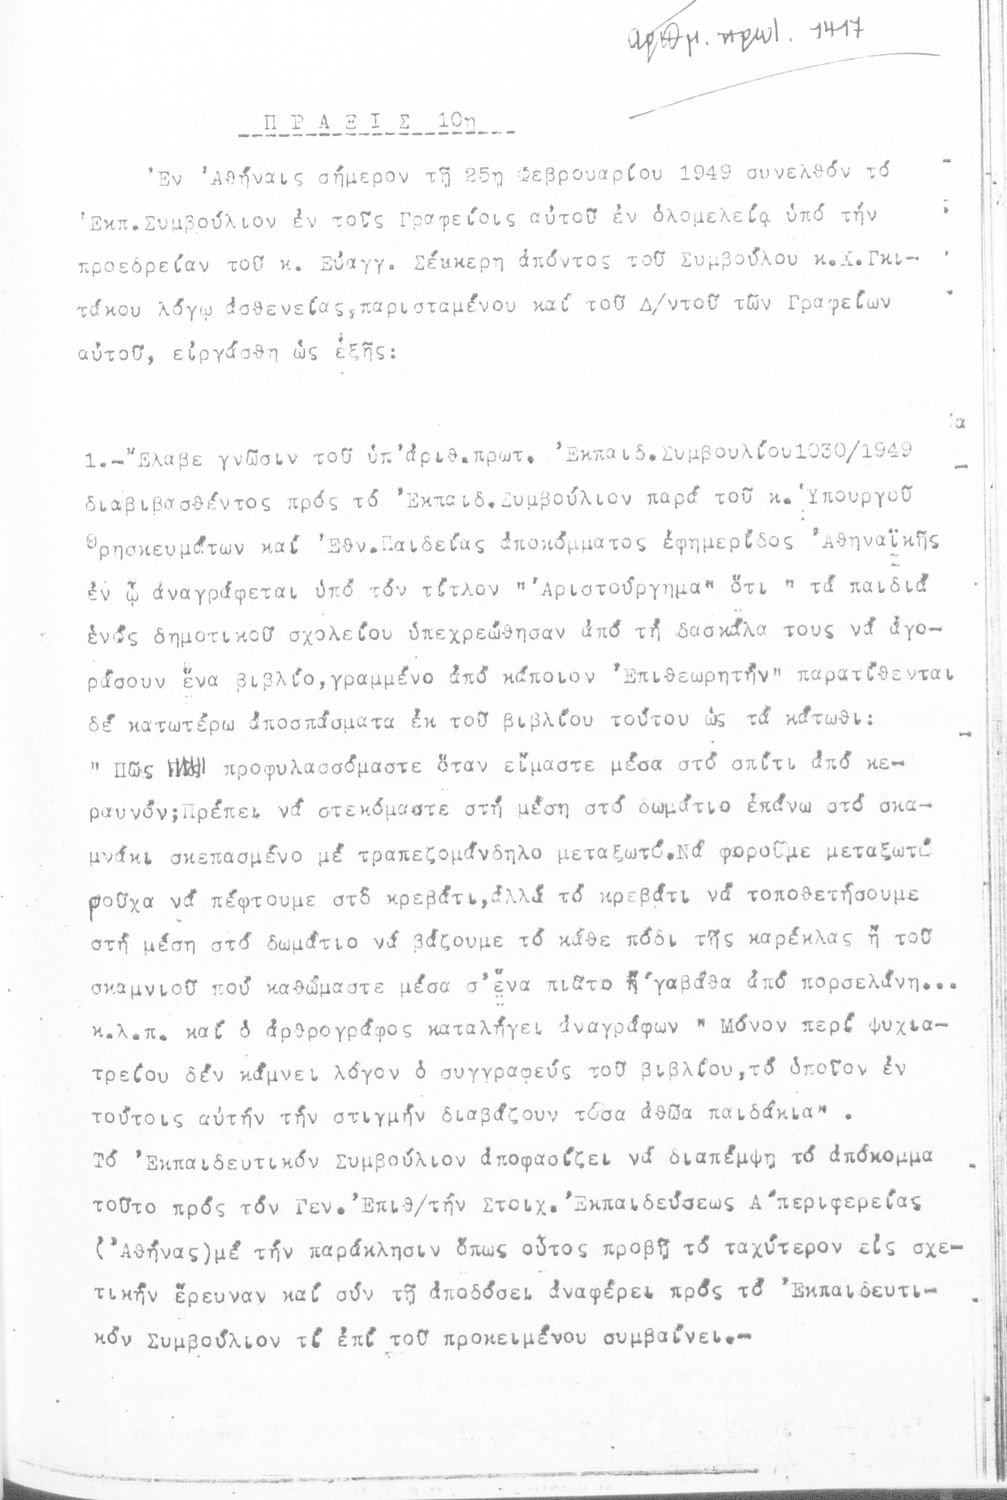 αριθμ. πρωτ. 1417
ΠΡΑΞΙΣ 10η
Ἐν Ἀθήναις σήμερον τῇ 25η Φεβρουαρίου 1949 συνελθόν τό
Ἐκπ.Συμβούλιον ἐν τοῖς Γραφείοις αὐτοῦ ἐν ὁλομελείᾳ ὑπό τήν
προεδρείαν τοῦ κ. Εὐαγγ. Σέκκερη ἀπόντος τοῦ Συμβούλου κ.Χ.Γκι-
τάκου λόγῳ ἀσθενείας,παρισταμένου καί τοῦ Δ/ντοῦ τῶν Γραφείων
αὐτοῦ, εἰργάσθη ὡς ἑξῆς:
1.-Ἔλαβε γνῶσιν τοῦ ὑπ'ἀριθ.πρωτ. Ἐκπαιδ.Συμβουλίου1030/1949
διαβιβασθέντος πρός τό Ἐκπαιδ.Συμβούλιον παρά τοῦ κ. Ὑπουργοῦ
Θρησκευμάτων καί Ἐθν.Παιδείας ἀποκόμματος ἐφημερίδος Ἀθηναϊκῆς
ἐν ᾧ ἀναγράφεται ὑπό τόν τίτλον "Ἀριστούργημα" ὅτι " τά παιδιά
ἑνός δημοτικοῦ σχολείου ὑπεχρεώθησαν ἀπό τή δασκάλα τους νά ἀγο-
ράσουν ἕνα βιβλίο,γραμμένο ἀπό κάποιον Ἐπιθεωρητήν" παρατίθενται
δέ κατωτέρω ἀποσπάσματα ἐκ τοῦ βιβλίου τούτου ὡς τά κάτωθι:
" Πῶς προφυλασσόμαστε ὅταν εἴμαστε μέσα στό σπίτι ἀπό κε-
ραυνόν;Πρέπει νά στεκόμαστε στή μέση στό δωμάτιο ἐπάνω στό σκα-
μνάκι σκεπασμένο μέ τραπεζομάνδηλο μεταξωτό.Νά φοροῦμε μεταξωτά
ροῦχα νά πέφτουμε στό κρεβάτι,ἀλλά τό κρεβάτι νά τοποθετήσουμε
στή μέση στό δωμάτιο νά βάζουμε τό κάθε πόδι τῆς καρέκλας ἤ τοῦ
σκαμνιοῦ πού καθώμαστε μέσα σ'ἕνα πιᾶτο ἤ γαβάθα ἀπό πορσελάνη...
κ.λ.π. καί ὁ ἀρθρογράφος καταλήγει ἀναγράφων " Μόνον περί ψυχια-
τρείου δέν κάμνει λόγον ὁ συγγραφεύς τοῦ βιβλίου,τό ὁποῖον ἐν
τούτοις αὐτήν τήν στιγμήν διαβάζουν τόσα ἀθῶα παιδάκια" .
Τό Ἐκπαιδευτικόν Συμβούλιον ἀποφασίζει νά διαπέμψῃ τό ἀπόκομμα
τοῦτο πρός τόν Γεν.Ἐπιθ/τήν Στοιχ.Ἐκπαιδεύσεως Α΄περιφερείας
(Ἀθήνας)μέ τήν παράκλησιν ὅπως οὗτος προβῇ τό ταχύτερον εἰς σχε-
τικήν ἔρευναν καί σύν τῇ ἀποδόσει ἀναφέρει πρός τό Ἐκπαιδευτι-
κόν Συμβούλιον τί ἐπί τοῦ προκειμένου συμβαίνει.-